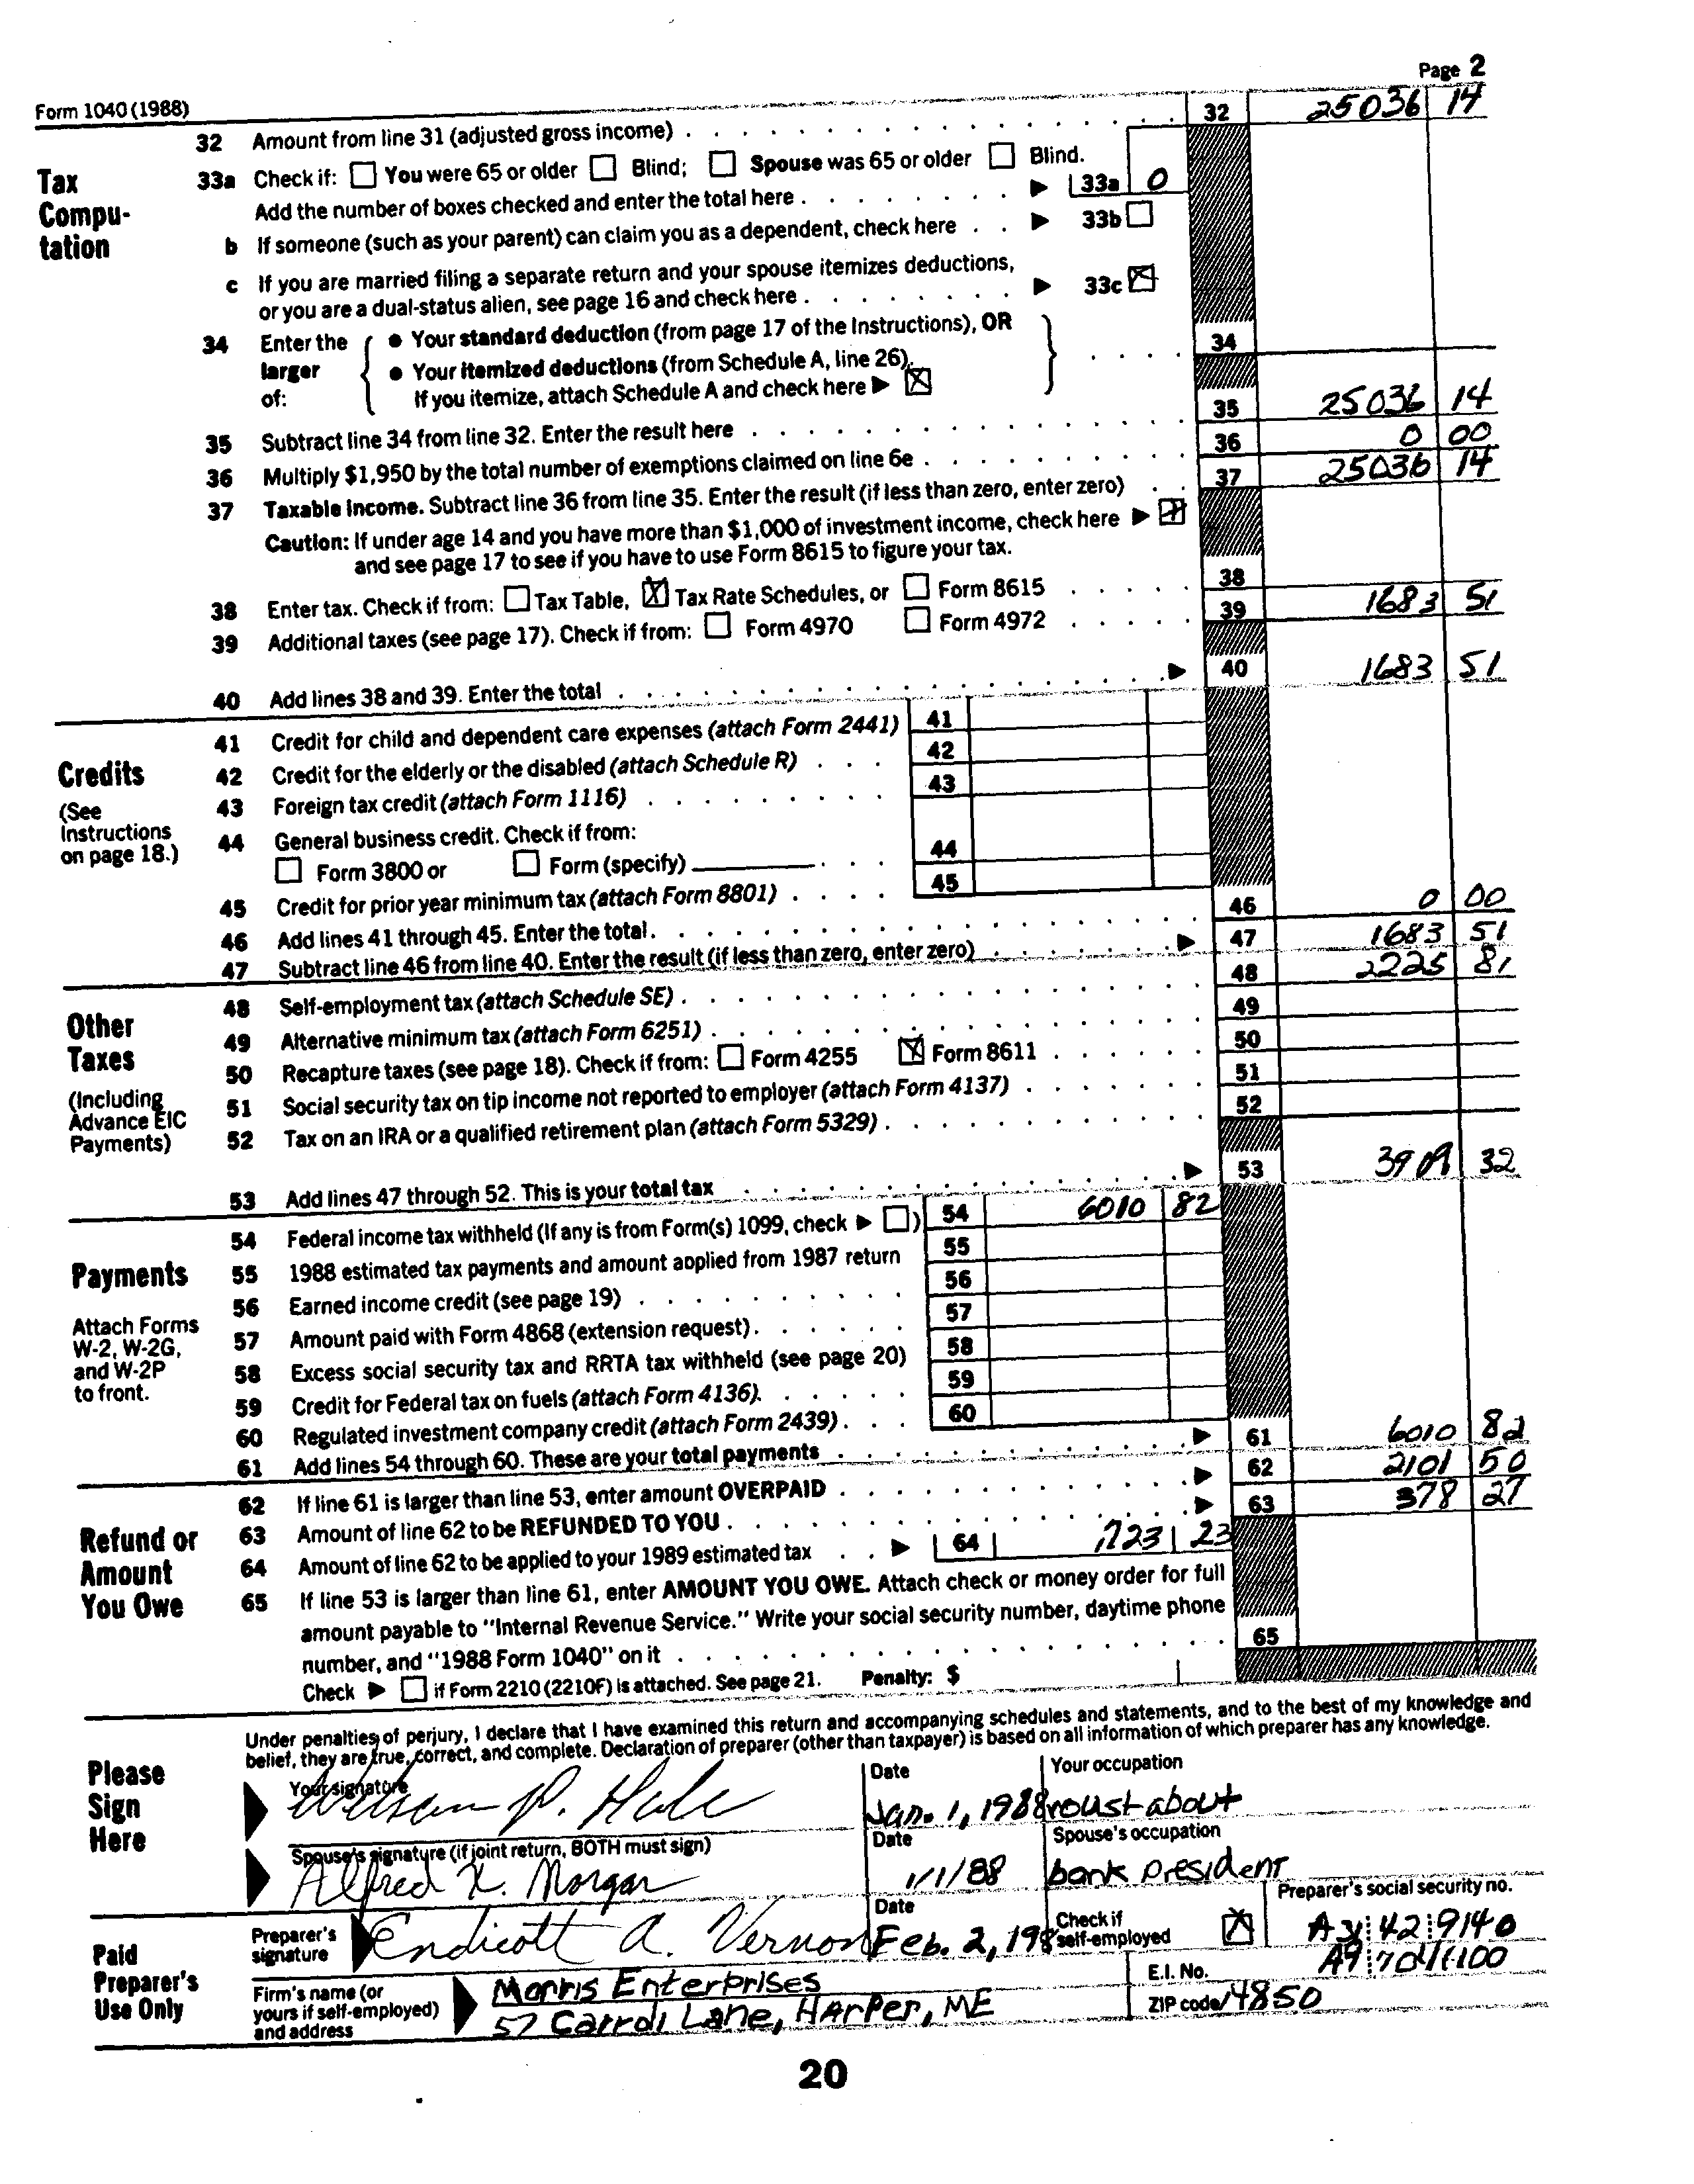 Page 2
Form 1040 (1988)
32 Amount from line 31 (adjusted gross income) 32 25036 14
Tax Compu-tation
33a Check if: You were 65 or older Blind; Spouse was 65 or older Blind.
Add the number of boxes checked and enter the total here 33a 0
b If someone (such as your parent) can claim you as a dependent, check here 33b
c If you are married filing a separate return and your spouse itemizes deductions,
or you are a dual-status alien, see page 16 and check here 33c X
34 Enter the larger of:
• Your standard deduction (from page 17 of the Instructions), OR
• Your itemized deductions (from Schedule A, line 26).
If you itemize, attach Schedule A and check here X
34
35 Subtract line 34 from line 32. Enter the result here 35 25036 14
36 Multiply $1,950 by the total number of exemptions claimed on line 6e 36 0 00
37 Taxable income. Subtract line 36 from line 35. Enter the result (if less than zero, enter zero) 37 25036 14
Caution: If under age 14 and you have more than $1,000 of investment income, check here
and see page 17 to see if you have to use Form 8615 to figure your tax.
38 Enter tax. Check if from: Tax Table, X Tax Rate Schedules, or Form 8615 38
39 Additional taxes (see page 17). Check if from: Form 4970 Form 4972 39 1683 51
40 Add lines 38 and 39. Enter the total 40 1683 51
Credits
(See Instructions on page 18.)
41 Credit for child and dependent care expenses (attach Form 2441) 41
42 Credit for the elderly or the disabled (attach Schedule R) 42
43 Foreign tax credit (attach Form 1116) 43
44 General business credit. Check if from:
Form 3800 or Form (specify) 44
45 Credit for prior year minimum tax (attach Form 8801) 45
46 Add lines 41 through 45. Enter the total 46 0 00
47 Subtract line 46 from line 40. Enter the result (if less than zero, enter zero) 47 1683 51
Other Taxes
(Including Advance EIC Payments)
48 Self-employment tax (attach Schedule SE) 48 2225 81
49 Alternative minimum tax (attach Form 6251) 49
50 Recapture taxes (see page 18). Check if from: Form 4255 X Form 8611 50
51 Social security tax on tip income not reported to employer (attach Form 4137) 51
52 Tax on an IRA or a qualified retirement plan (attach Form 5329) 52
53 Add lines 47 through 52. This is your total tax 53 3909 32
Payments
Attach Forms W-2, W-2G, and W-2P to front.
54 Federal income tax withheld (If any is from Form(s) 1099, check ) 54 6010 82
55 1988 estimated tax payments and amount applied from 1987 return 55
56 Earned income credit (see page 19) 56
57 Amount paid with Form 4868 (extension request) 57
58 Excess social security tax and RRTA tax withheld (see page 20) 58
59 Credit for Federal tax on fuels (attach Form 4136) 59
60 Regulated investment company credit (attach Form 2439) 60
61 Add lines 54 through 60. These are your total payments 61 6010 82
Refund or Amount You Owe
62 If line 61 is larger than line 53, enter amount OVERPAID 62 2101 50
63 Amount of line 62 to be REFUNDED TO YOU 63 378 27
64 Amount of line 62 to be applied to your 1989 estimated tax 64 1723 23
65 If line 53 is larger than line 61, enter AMOUNT YOU OWE. Attach check or money order for full
amount payable to "Internal Revenue Service." Write your social security number, daytime phone
number, and "1988 Form 1040" on it 65
Check if Form 2210 (2210F) is attached. See page 21. Penalty: $
Please Sign Here
Under penalties of perjury, I declare that I have examined this return and accompanying schedules and statements, and to the best of my knowledge and
belief, they are true, correct, and complete. Declaration of preparer (other than taxpayer) is based on all information of which preparer has any knowledge.
Your signature Date Your occupation
P. Hale Jan. 1, 1988 roustabout
Spouse's signature (if joint return, BOTH must sign) Date Spouse's occupation
Alfred X. Morgan 1/1/88 bank president
Paid Preparer's Use Only
Preparer's signature Date Check if self-employed Preparer's social security no.
Endicott A. Vernon Feb. 2, 198 X 42 9140
Firm's name (or yours if self-employed) and address
Morris Enterprises E.I. No.
57 Carroll Lane, Harper, ME ZIP code 14850
20